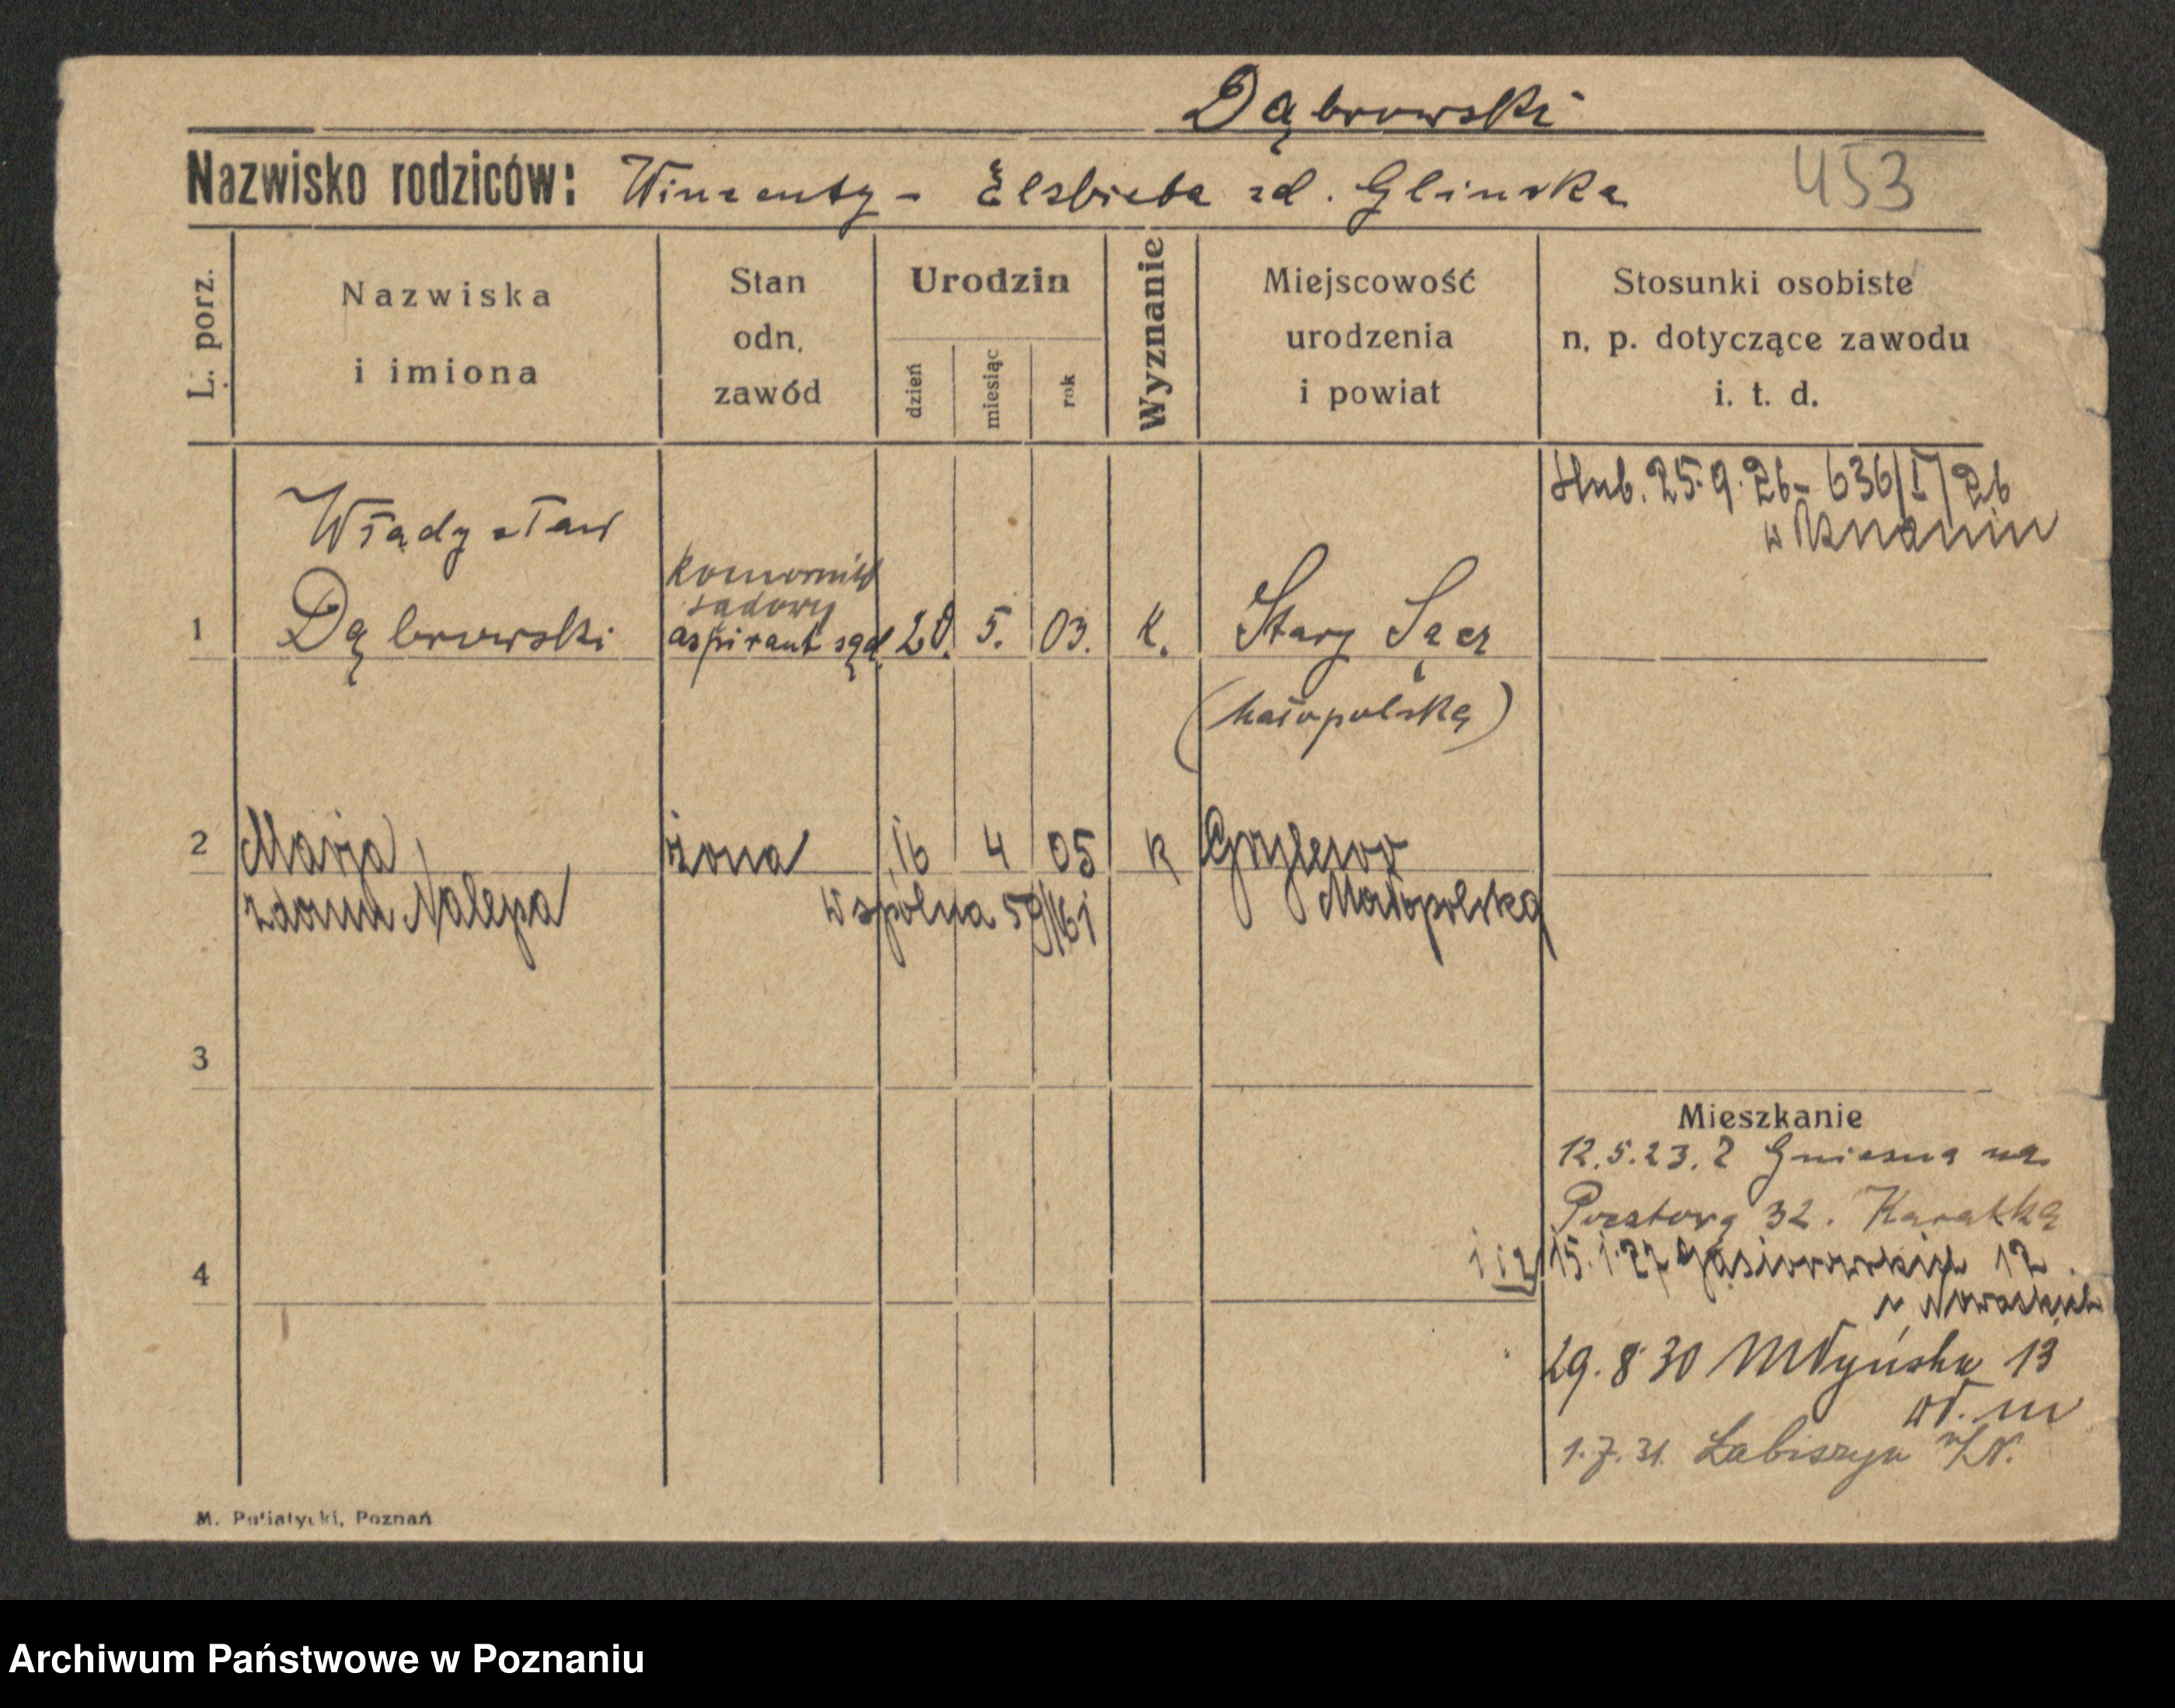 Dąbrowski
Nazwisko rodziców: Wincenty - Elsbieta zd. Glinska
453
L. porz.
Nazwiska
i imiona
Stan
odn.
zawód
Urodzin
dzień
miesiąc
rok
Wyznanie
Miejscowość
urodzenia
i powiat
Stosunki osobiste
n. p. dotyczące zawodu
i. t. d.
ślub. 25.9.26 - 636/I/26
w Poznaniu
1
Władysław
Dąbrowski
komornik
sądowy
aspirant sąd.
28. 5. 03. K.
Stary Sącz
(Małopolska)
2
Marja
zdomu Nalepa
żona
16 4 05 K
Małopolska
wspólna
3
4
Mieszkanie
12.5.23. z Gniezna na
Pocztową 32.
i 2 15.1.27 Gąsiorowskich 12
29.8 30 Młyńska 13
1.7.31. Łabiszyn n/N.
M. Putiatycki, Poznań
Archiwum Państwowe w Poznaniu